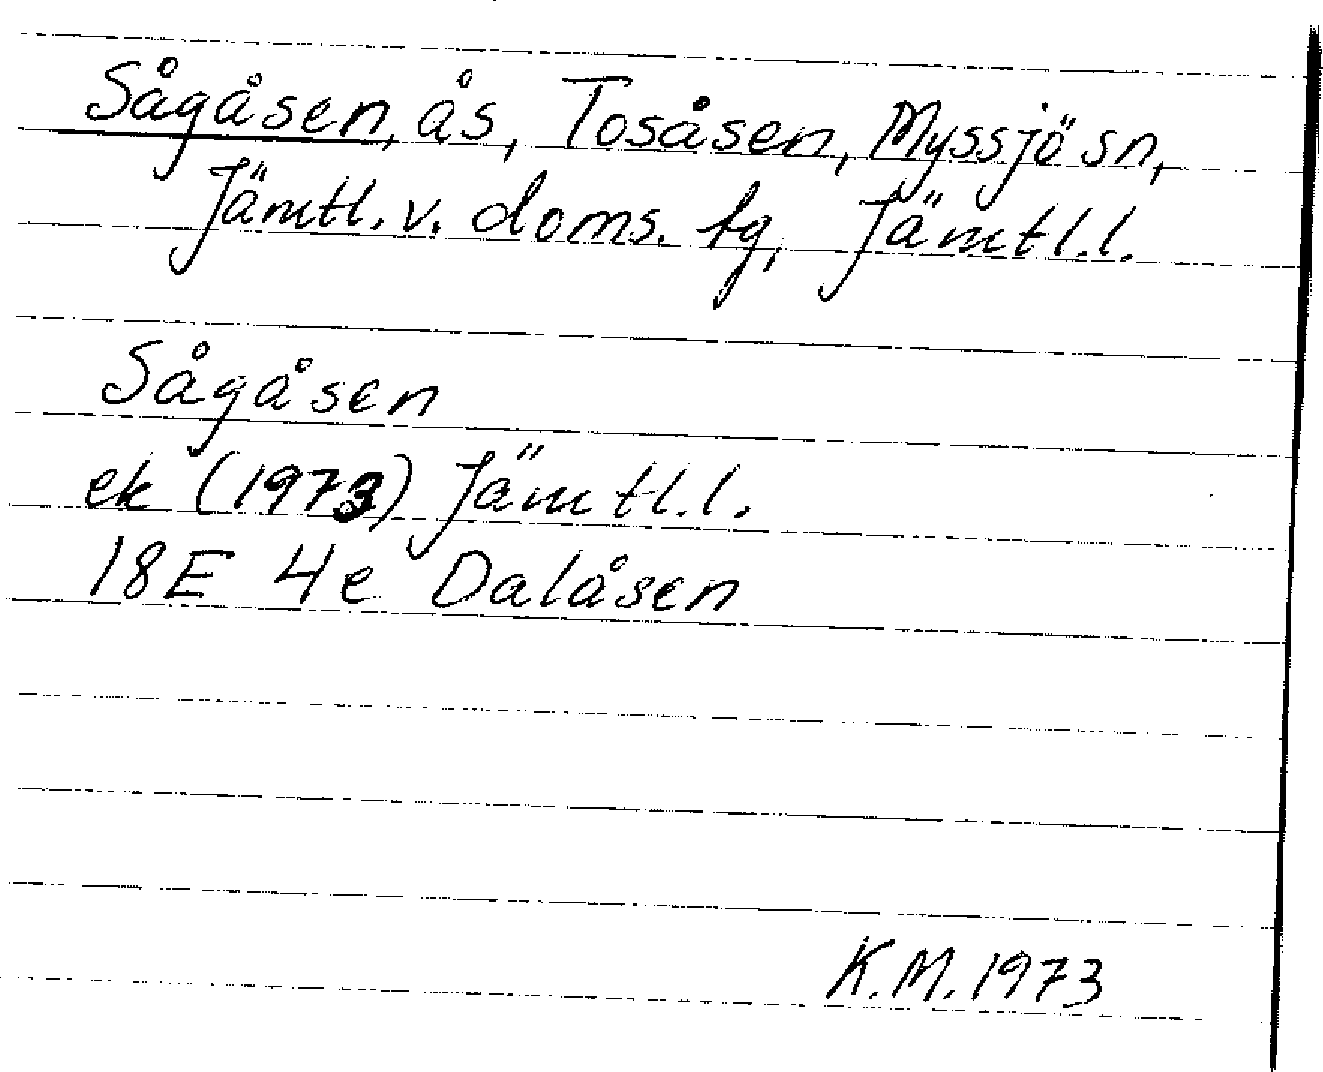 Sågåsen, ås, Tosåsen, Myssjö sn,
Jämtl. v. doms. tg, Jämtl.l.
Sågåsen
ek (1973) Jämtl.l.
18E 4e Dalåsen
K.M. 1973